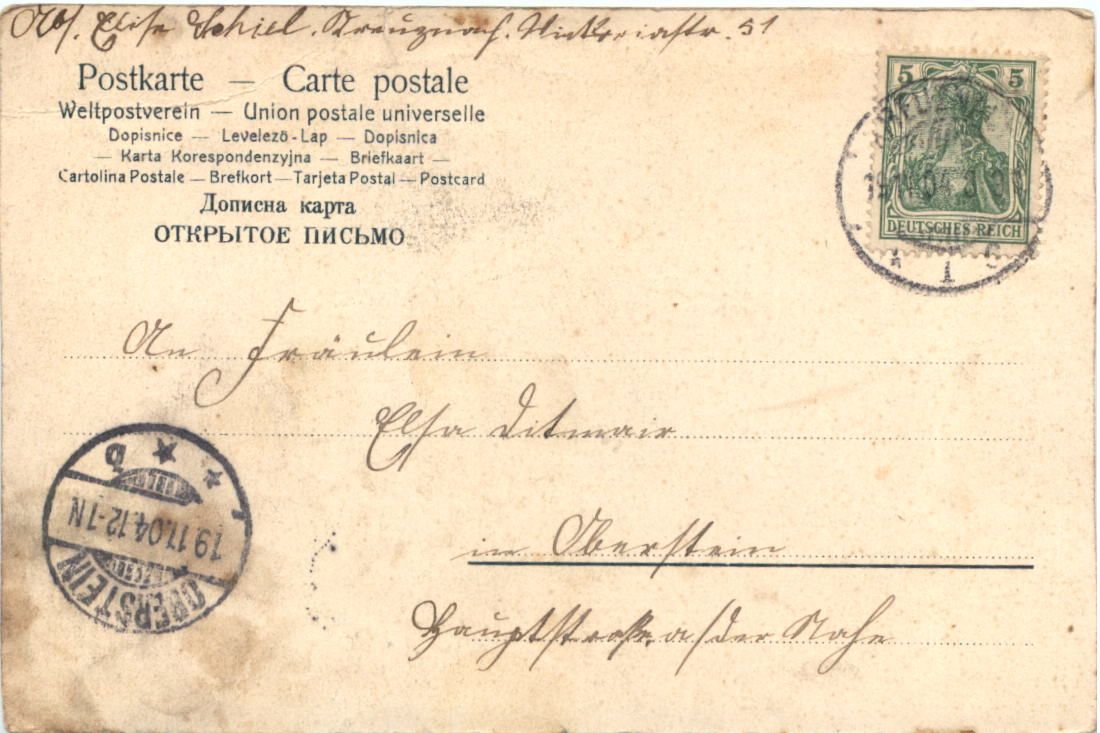 Abs. Elise Schiel. Kreuznach. Viktoriastr. 51
Postkarte — Carte postale
Weltpostverein — Union postale universelle
Dopisnice — Levelező-Lap — Dopisnica
— Karta Korespondenzyjna — Briefkaart —
Cartolina Postale — Brefkort — Tarjeta Postal — Postcard
Дописна карта
ОТКРЫТОЕ ПИСЬМО
5 5
DEUTSCHES REICH
1
An Fräulein
Elsa Ditmair
in Oberstein
Hauptstrasse a/der Nahe
OBERSTEIN
19.11.04.12-1N
* b *